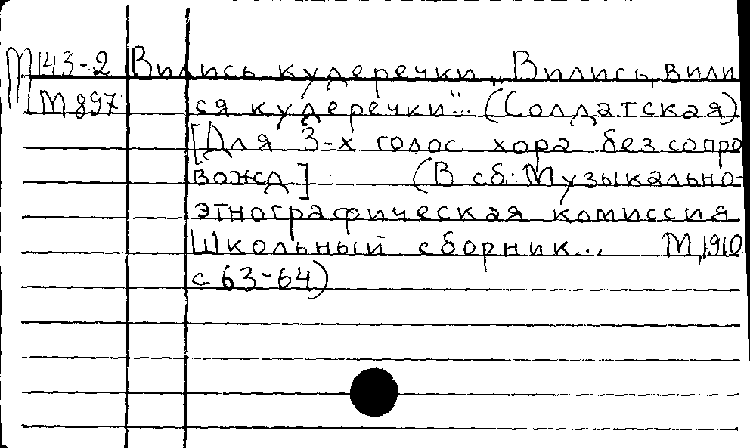 М143-2 Вились кудеречки „Вились, вили
М897 ся кудеречки“... (Солдатская)
[Для 3-х голос хора без сопро
вожд.] (В сб: Музыкально-
этнографическая комиссия
Школьный сборник... М, 1910
с 63-64)